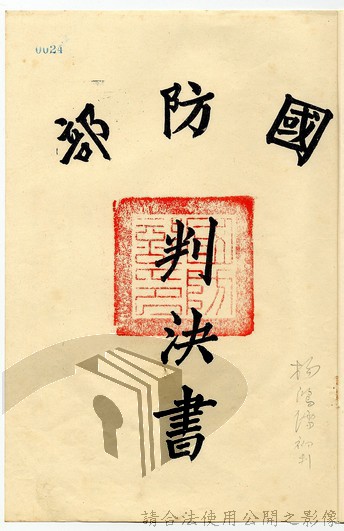 0024
國防部
判決書
請合法使用公開之影像